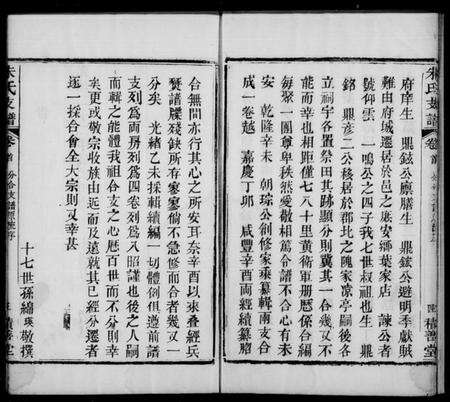 朱氏支譜
卷首
積善堂
府庠生　鼎鉉公廩膳生　鼎鋐公避明季獻賊
難由府城遷居於邑之應安鄉葉家店　諫公者
號仰雲　一鳴公之四子我七世叔祖也生　鼎
銘　鼎彥二公移居於郡北之魄家涼亭嗣後各
立祠宇各置祭田其跡顯分則冀其一合幾又不
能而幸也相距僅七八十里黃術軍册厯係合編
每聚一團尊卑秩然愛敬相篤分譜不合心有未
安　乾隆辛未　朝琮公創修家乘纂輯兩支合
成一卷越　嘉慶丁卯　咸豐辛酉兩經續纂臍
合無間亦行其心之所安耳奈辛酉以來叠經兵
燹譜牒殘缺所存寥寥倘不急修而合者幾又一
分矣　光緒乙未採輯續編一切體例俱遵前譜
支列為兩房列為四卷列為八昭謹也後之人嗣
而輯之能體我祖合支之心厯百世而不分則幸
矣更或敬宗收族由近而及遠就其已經分遷者
逐一採合會全大宗則又幸甚
十七世孫繡瑛敬撰
朱氏支譜
卷首